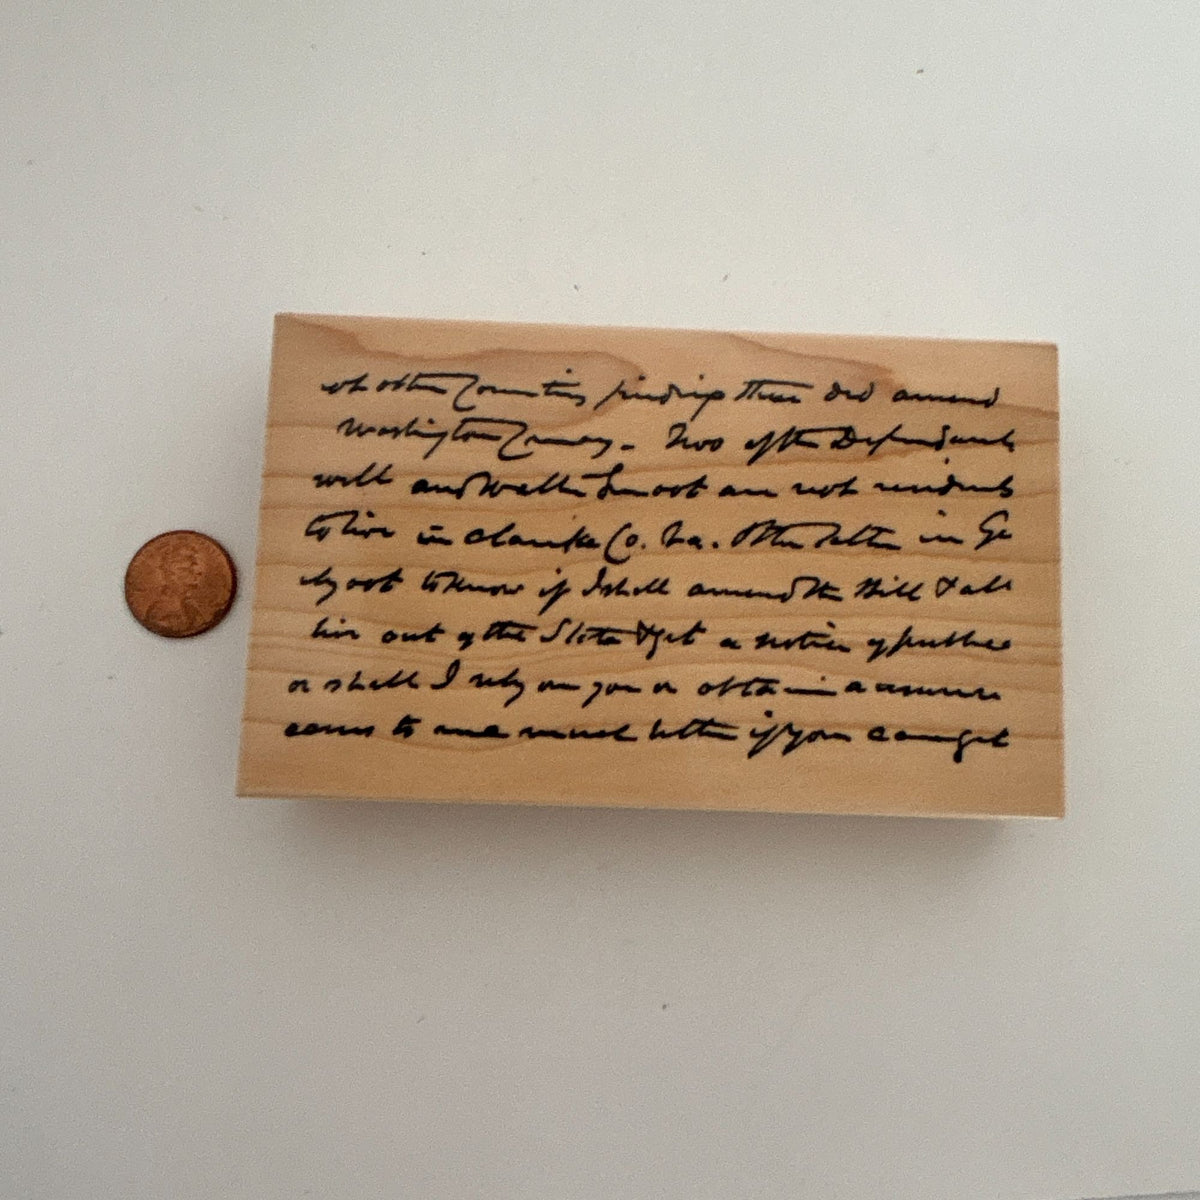 other Counties finding there did amend
Washington County - Two of the Defendants
will and Walter Smoot are not residents
to live in Clarke Co. Va. Other in Ge
to know if I shall amend the Bill & all
live out of the State & get a notice
or shall I rely on you or obtain a
to me much better if you can get